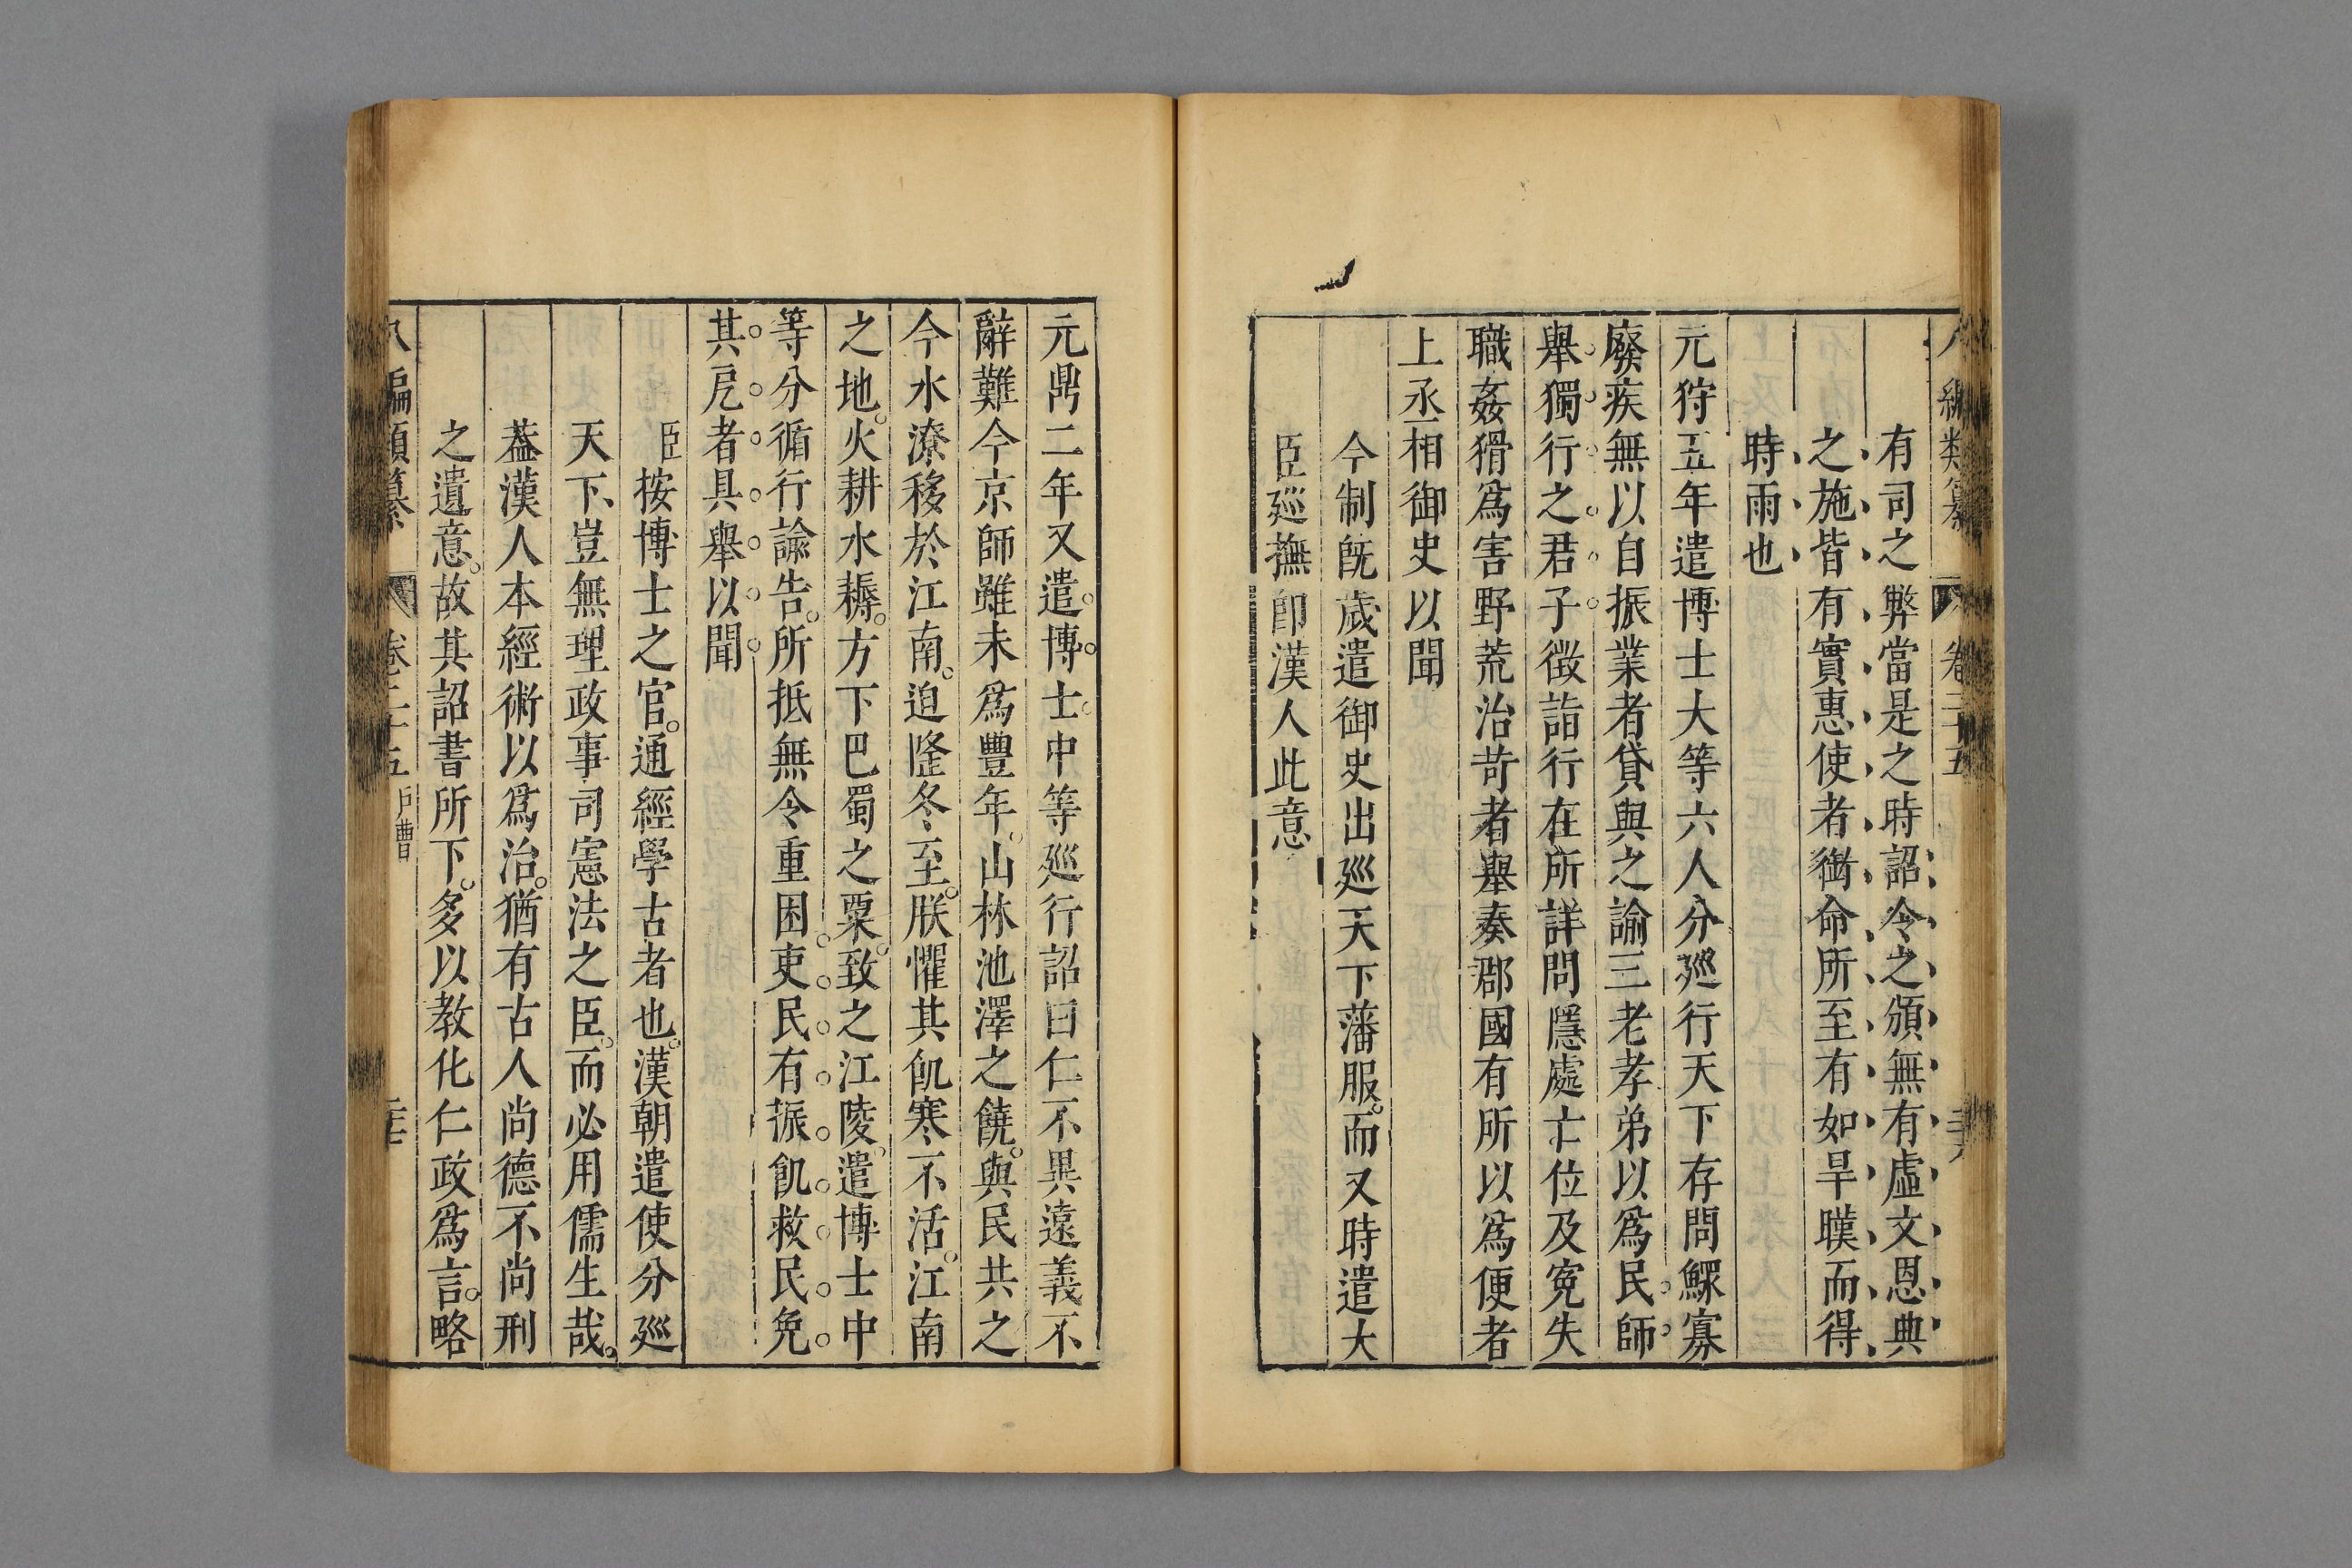 編類纂 卷三十五
有司之弊當是之時詔令之頒無有虛文恩典
之施皆有實惠使者銜命所至有如旱暵而得
時雨也
元狩五年遣博士大等六人分廵行天下存問鰥寡
廢疾無以自振業者貸與之諭三老孝弟以爲民師
舉獨行之君子徵詣行在所詳問隱處亡位及寃失
職姦猾爲害野荒治苛者舉奏郡國有所以爲便者
上丞相御史以聞
今制旣歲遣御史出廵天下藩服。而又時遣大
臣廵撫卽漢人此意
元鼎二年又遣博士中等廵行詔曰仁不異遠義不
辭難今京師雖未爲豐年。山林池澤之饒。與民共之
今水潦移於江南。迫隆冬至。朕懼其飢寒不活。江南
之地。火耕水耨。方下巴蜀之粟。致之江陵。遣博士中
等分循行諭告。所抵無令重困吏民有振飢救民免
其戹者具舉以聞
臣按博士之官。通經學古者也。漢朝遣使分廵
天下、豈無理政事司憲法之臣。而必用儒生哉。
葢漢人本經術以爲治。猶有古人尚德不尚刑
之遺意。故其詔書所下。多以教化仁政爲言。略
編類纂 卷三十五 戸曹